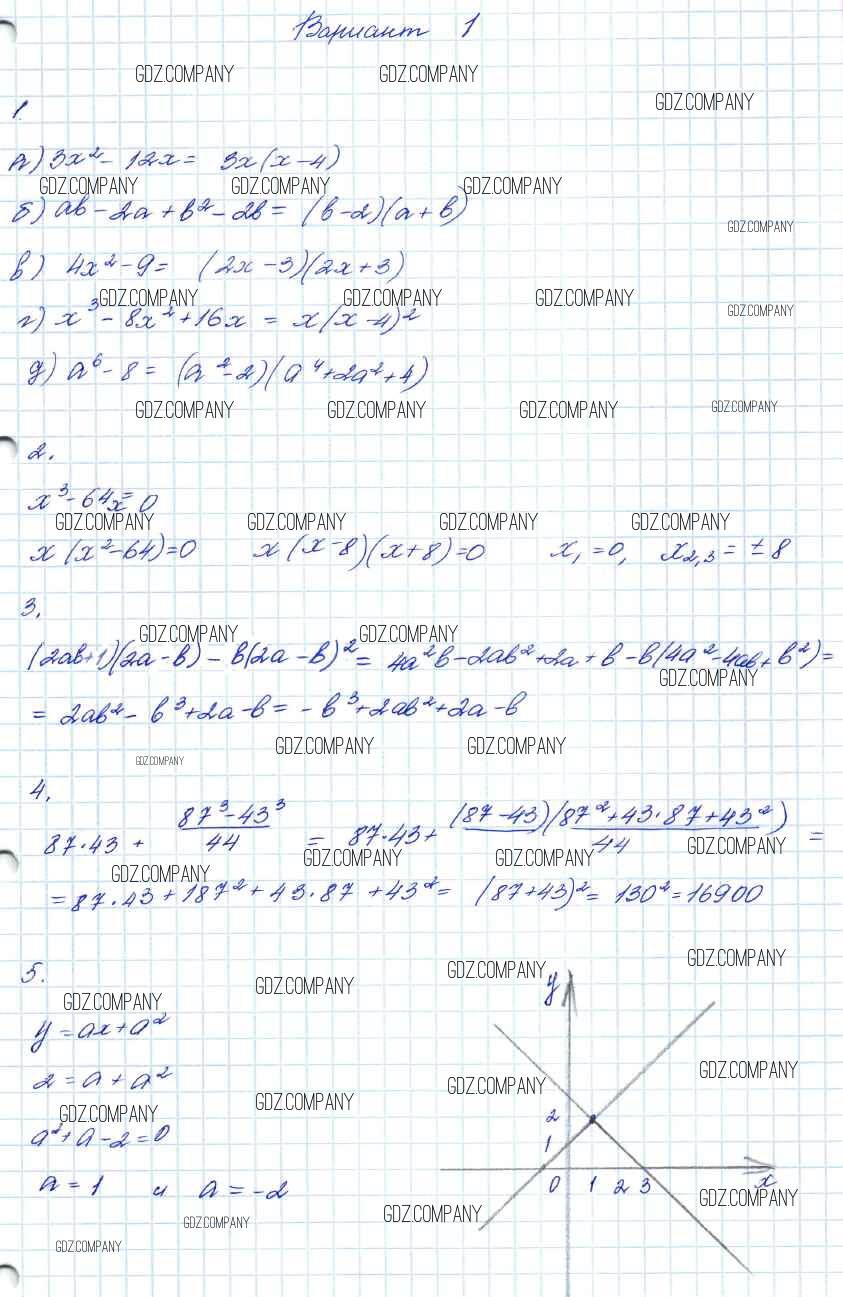 Вариант 1
GDZ.COMPANY GDZ.COMPANY
GDZ.COMPANY
1.
а) 3x² - 12x = 3x(x-4)
GDZ.COMPANY GDZ.COMPANY GDZ.COMPANY
б) ab - 2a + b² - 2b = (b-2)(a+b)
GDZ.COMPANY
в) 4x² - 9 = (2x-3)(2x+3)
GDZ.COMPANY GDZ.COMPANY GDZ.COMPANY
г) x³ - 8x² + 16x = x(x-4)²
GDZ.COMPANY
д) a⁶ - 8 = (a²-2)(a⁴+2a²+4)
GDZ.COMPANY GDZ.COMPANY GDZ.COMPANY GDZ.COMPANY
2.
x³ - 64x = 0
GDZ.COMPANY GDZ.COMPANY GDZ.COMPANY GDZ.COMPANY
x(x²-64)=0 x(x-8)(x+8)=0 x₁=0, x₂,₃ = ±8
3.
GDZ.COMPANY GDZ.COMPANY
(2ab+1)(2a-b) - b(2a-b)² = 4a²b - 2ab² + 2a + b - b(4a² - 4ab + b²) =
GDZ.COMPANY
= 2ab² - b³ + 2a - b = - b³ + 2ab² + 2a - b
GDZ.COMPANY GDZ.COMPANY
GDZ.COMPANY
4.
87·43 + (87³-43³)/44 = 87·43 + (87-43)(87²+43·87+43²)/44 =
GDZ.COMPANY GDZ.COMPANY GDZ.COMPANY GDZ.COMPANY
= 87·43 + 187² + 43·87 + 43² = (87+43)² = 130² = 16900
5.
GDZ.COMPANY GDZ.COMPANY GDZ.COMPANY GDZ.COMPANY
y = ax + a²
2 = a + a²
GDZ.COMPANY GDZ.COMPANY GDZ.COMPANY GDZ.COMPANY
a² + a - 2 = 0
a = 1 и a = -2
y
2
1
0 1 2 3 x
GDZ.COMPANY GDZ.COMPANY GDZ.COMPANY
GDZ.COMPANY